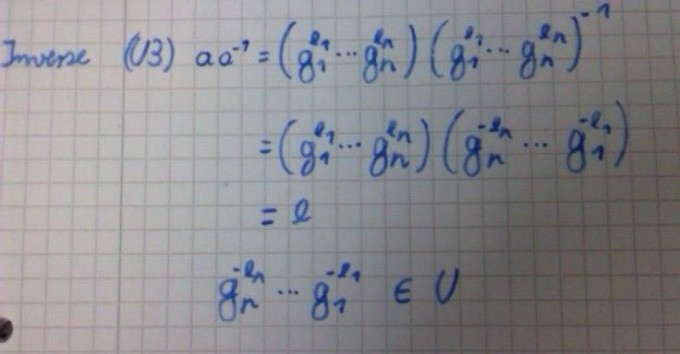 Inverse (U3) aa⁻¹ = (g₁^e₁ ... gₙ^eₙ) (g₁^e₁ ... gₙ^eₙ)⁻¹
= (g₁^e₁ ... gₙ^eₙ) (gₙ^-eₙ ... g₁^-e₁)
= e
gₙ^-eₙ ... g₁^-e₁ ∈ U